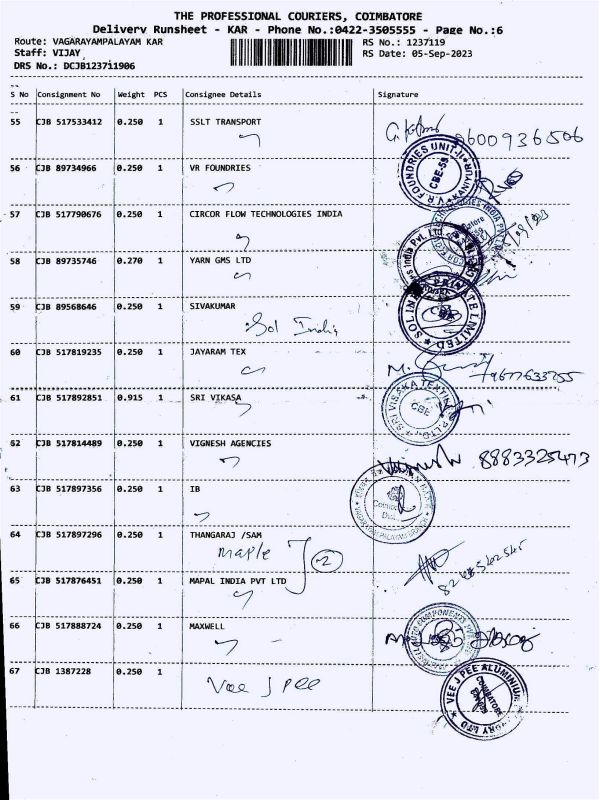 THE PROFESSIONAL COURIERS, COIMBATORE
Delivery Runsheet - KAR - Phone No.:0422-3505555 - Page No.:6
Route: VAGARAYAMPALAYAM KAR RS No.: 1237119
Staff: VIJAY RS Date: 05-Sep-2023
DRS No.: DCJB123711906
S No Consignment No Weight PCS Consignee Details Signature
55 CJB 517533412 0.250 1 SSLT TRANSPORT
9600936506
56 CJB 89734966 0.250 1 VR FOUNDRIES
V.R. FOUNDRIES UNIT-II
CBE-59
57 CJB 517790676 0.250 1 CIRCOR FLOW TECHNOLOGIES INDIA
58 CJB 89735746 0.270 1 YARN GMS LTD
59 CJB 89568646 0.250 1 SIVAKUMAR
Sol India
PRIVATE LIMITED
60 CJB 517819235 0.250 1 JAYARAM TEX
61 CJB 517892851 0.915 1 SRI VIKASA
CBE
62 CJB 517814489 0.250 1 VIGNESH AGENCIES
Vignesh 8883325473
63 CJB 517897356 0.250 1 IB
64 CJB 517897296 0.250 1 THANGARAJ /SAM
Maple 2
65 CJB 517876451 0.250 1 MAPAL INDIA PVT LTD
66 CJB 517888724 0.250 1 MAXWELL
67 CJB 1387228 0.250 1
Vee J Pee
VEE J PEE ALUMINIUM FOUNDRY LTD
COIMBATORE